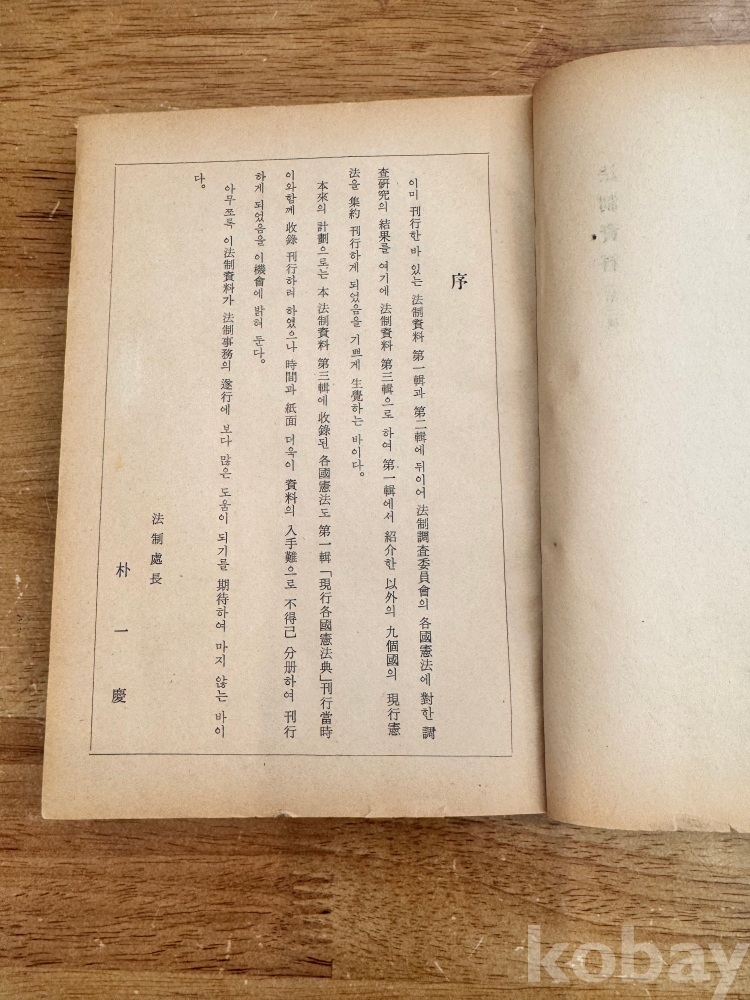 序
이미 刊行한바 있는 法制資料 第一輯과 第二輯에 뒤이어 法制調査委員會의 各國憲法에 對한 調
査硏究의 結果를 여기에 法制資料 第三輯으로 하여 第一輯에서 紹介한 以外의 九個國의 現行憲
法을 集約 刊行하게 되었음을 기쁘게 生覺하는 바이다。
本來의 計劃으로는 本 法制資料 第三輯에 收錄된 各國憲法도 第一輯「現行各國憲法典」刊行當時
이와함께 收錄 刊行하려 하였으나 時間과 紙面 더욱이 資料의 入手難으로 不得己 分册하여 刊行
하게 되었음을 이機會에 밝혀 둔다。
아무쪼록 이法制資料가 法制事務의 遂行에 보다 많은 도움이 되기를 期待하여 마지 않는 바이
다。
法制處長
朴 一 慶
法制資料
kobay